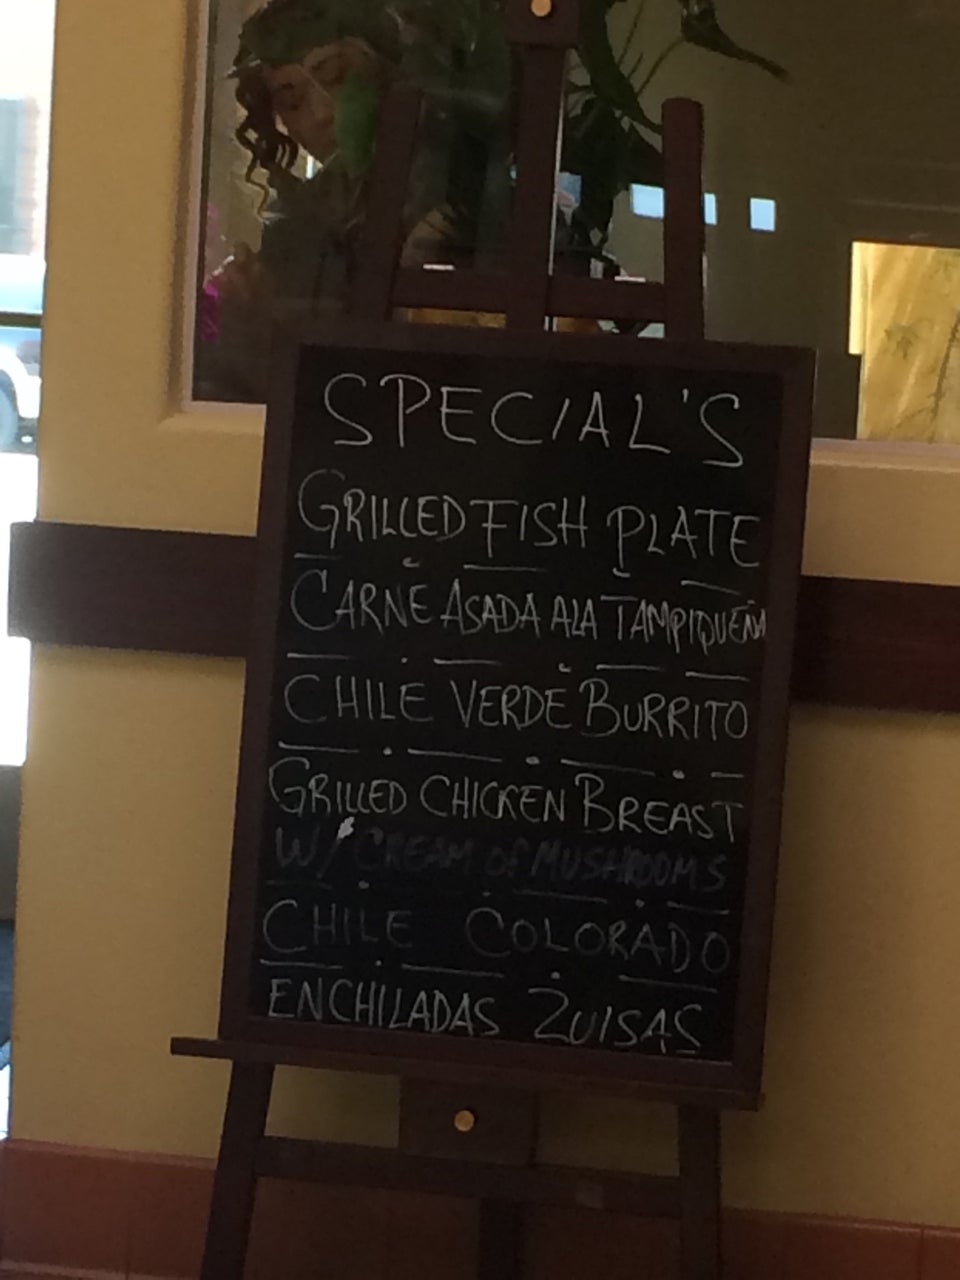 SPECIAL'S
GRILLED FISH PLATE
CARNE ASADA ALA TAMPIQUEÑA
CHILE VERDE BURRITO
GRILLED CHICKEN BREAST
W/ CREAM OF MUSHROOMS
CHILE COLORADO
ENCHILADAS ZUISAS